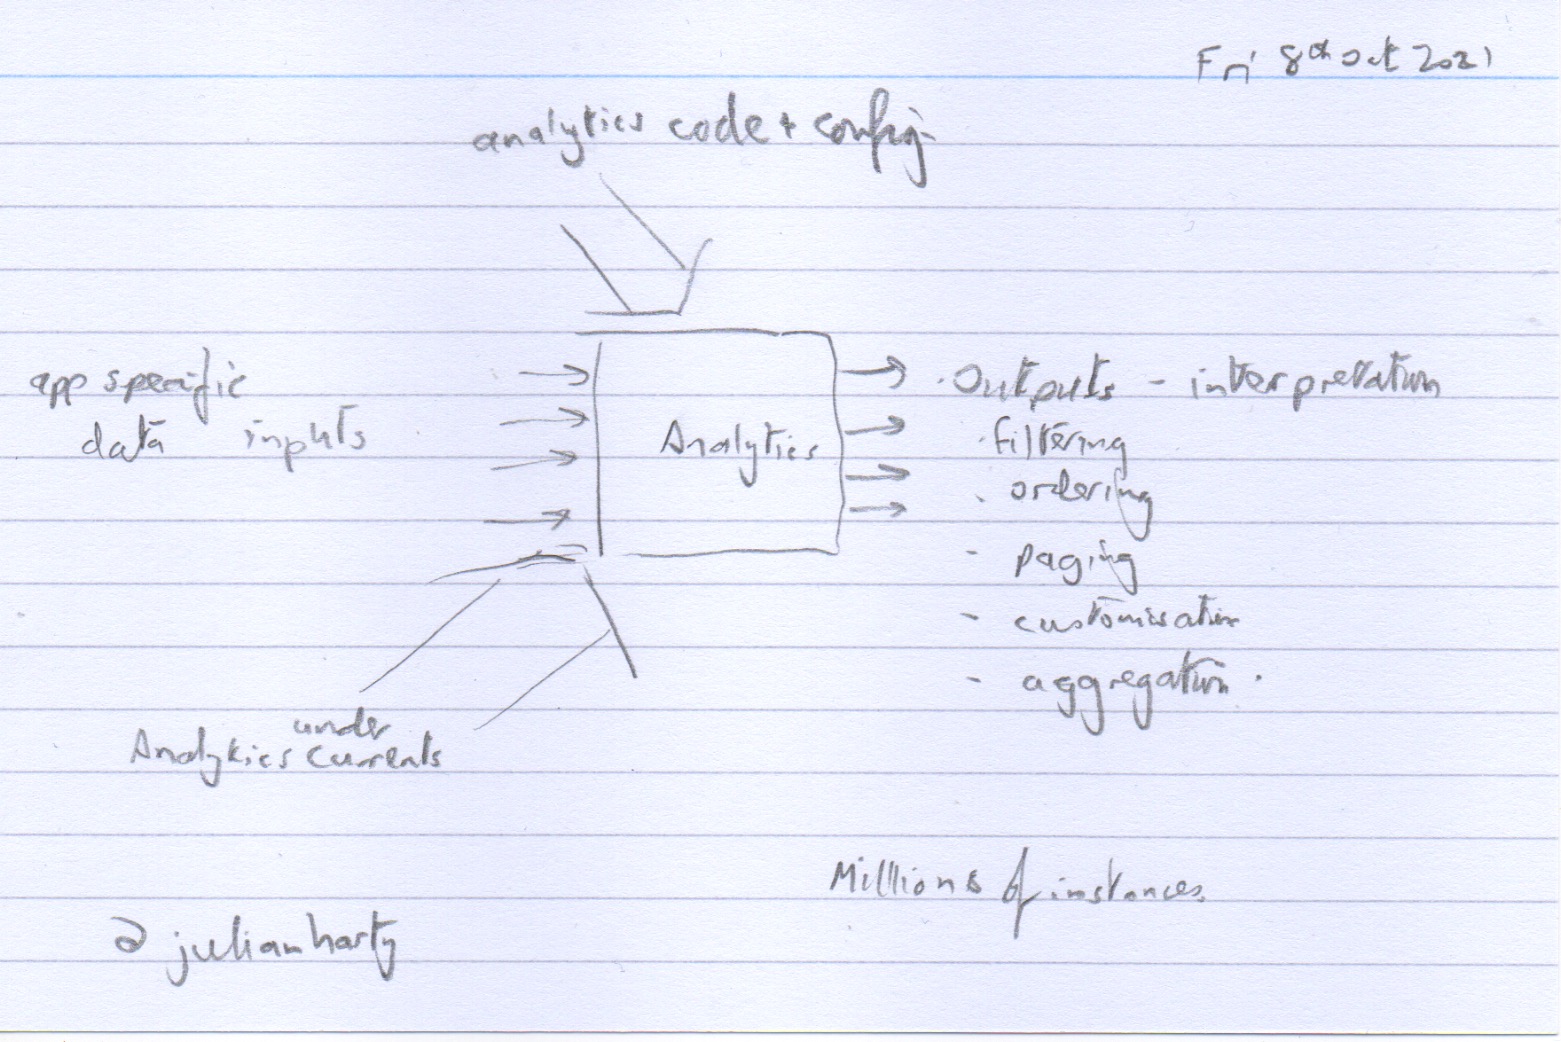 Fri 8th Oct 2021
analytics code + config
app specific
data inputs
Analytics
· Outputs - interpretation
· filtering
· ordering
- paging
- customisation
- aggregation ·
under
Analytics Currents
Millions of instances
@julianharty